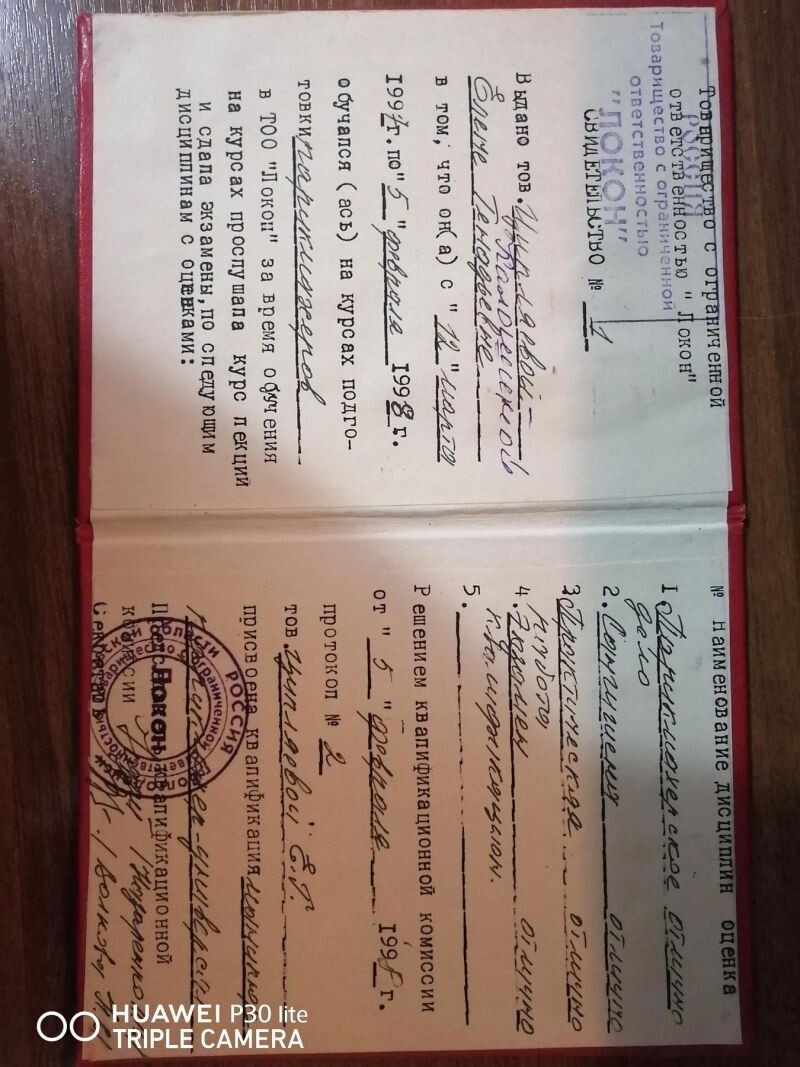 Товарищество с ограниченной
ответственностью "Локон"
РОССИЯ
Товарищество с ограниченной
ответственностью
"ЛОКОН"
СВИДЕТЕЛЬСТВО № 1
Выдано тов. Циплявой-
Елене Генадьевне
в том, что он(а) с "12" марта
1997г. по "5" февраля 1998 г.
обучался (ась) на курсах подго-
товки парикмахеров
в ТОО "Локон" за время обучения
на курсах прослушала курс лекций
и сдала экзамены, по следующим
дисциплинам с оценками:
№ Наименование дисциплин оценка
1 Парикмахерское отлично
дело
2. Сангигиена отлично
3 Практическая отлично
работа
4. Экзамен отлично
квалификацион.
5.
Решением квалификационной комиссии
от "5" февраля 1998 г.
протокол № 2
тов Циплявой Е.Г.
присвоена квалификация
парикмахер-универсал
Председатель квалификационной
комиссии
Секретарь
РОССИЯ
Локон
HUAWEI P30 lite
TRIPLE CAMERA